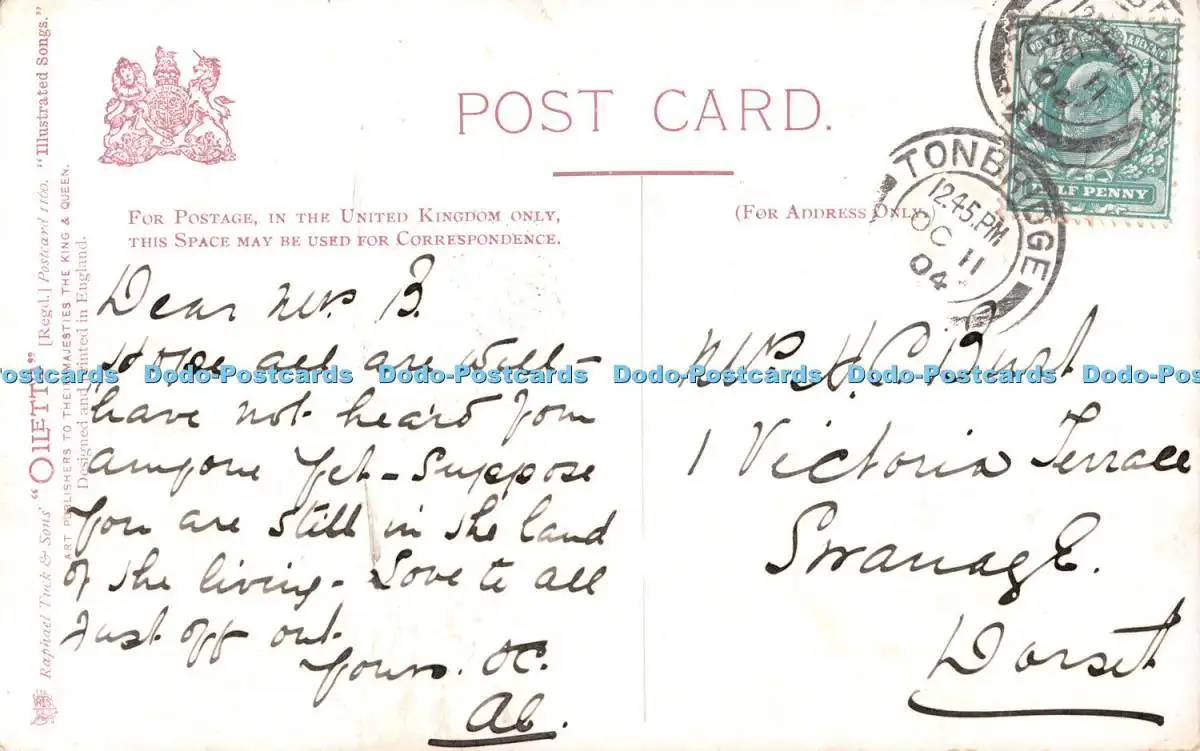 POST CARD.
FOR POSTAGE, IN THE UNITED KINGDOM ONLY,
THIS SPACE MAY BE USED FOR CORRESPONDENCE.
(FOR ADDRESS ONLY.)
Raphael Tuck & Sons' "OILETTE" [Regd.] Postcard 1160. "Illustrated Songs."
ART PUBLISHERS TO THEIR MAJESTIES THE KING & QUEEN.
Designed and Printed in England.
TONBRIDGE
12.45.PM
OC 11
04
HALF PENNY
Dear Mrs B.
Hope all are well -
have not heard from
anyone yet - Suppose
you are still in the land
of the living - Love to all
Just off out
Yours. &C.
Mrs H. C. Burt
1 Victoria Terrace
Swanage.
Dorset
Dodo-Postcards Dodo-Postcards Dodo-Postcards Dodo-Postcards Dodo-Postcards